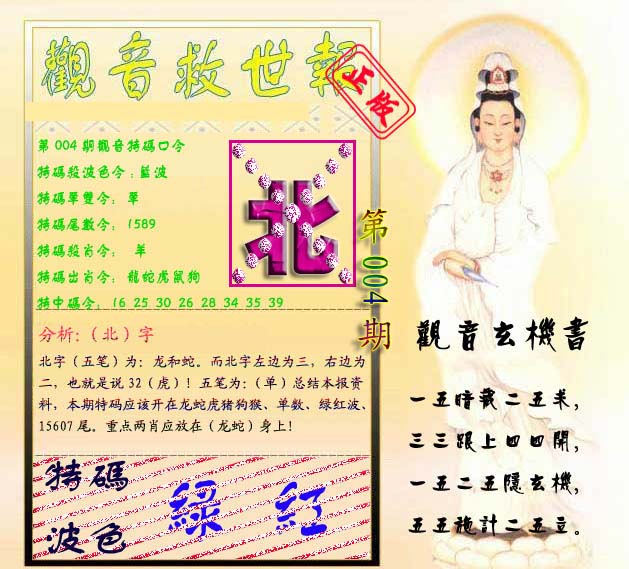 觀音救世報
正版
第004期觀音特碼口令
特碼殺波色令：藍波
特碼單雙令： 單
特碼尾數令： 1589
特碼殺肖令： 羊
特碼出肖令： 龍蛇虎鼠狗
特中碼令： 16 25 30 26 28 34 35 39
北
第004期
分析:（北）字
北字（五笔）为：龙和蛇。而北字左边为三，右边为
二，也就是说32（虎）！五笔为:（单）总结本报资
料，本期特码应该开在龙蛇虎猪狗猴、单数、绿红波、
15607尾。重点两肖应放在（龙蛇）身上!
特碼
波色
綠 紅
觀音玄機書
一五暗藏二五来，
三三跟上四四開，
一五二五隱玄機，
五五施計二五立。